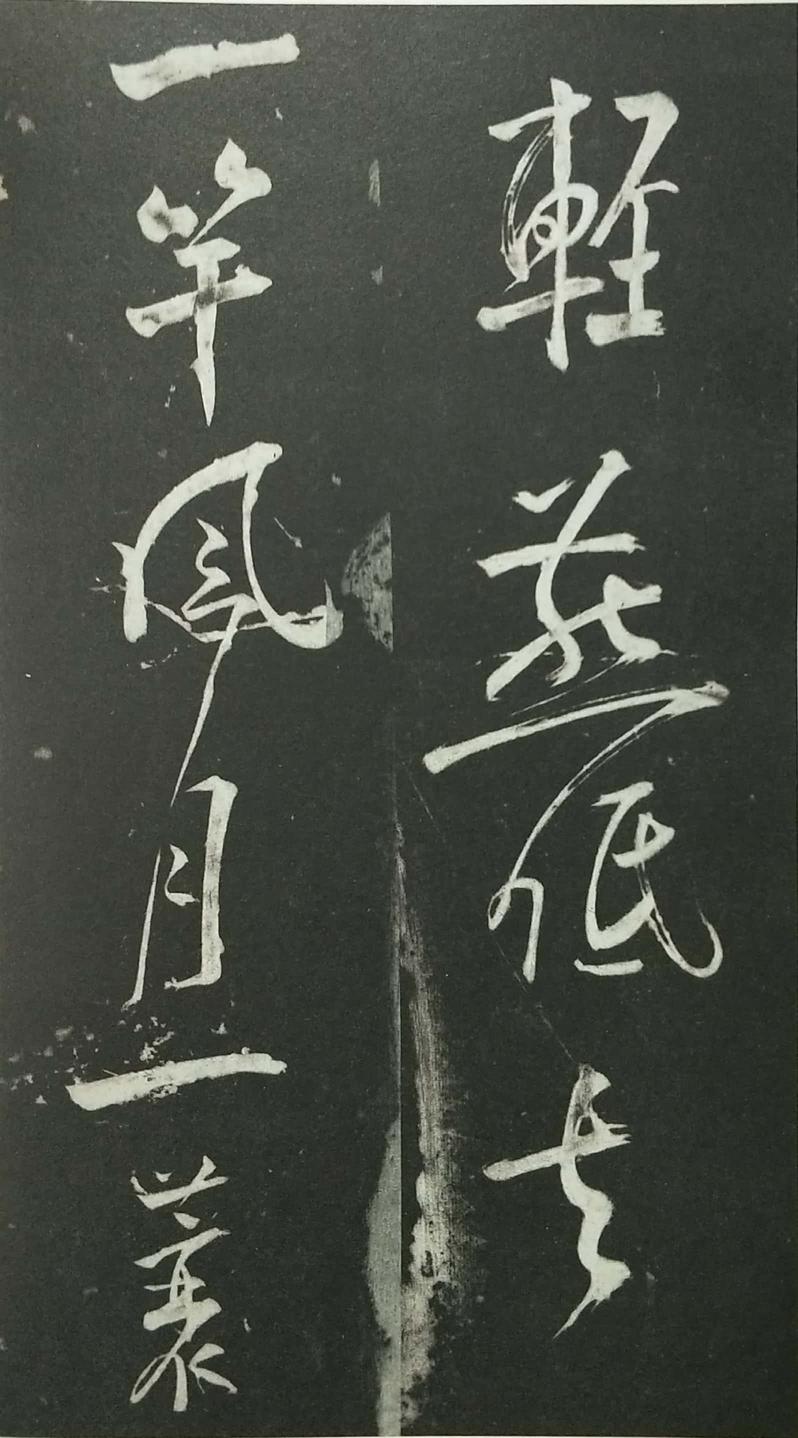 輕燕低去
一竿風月一蓑